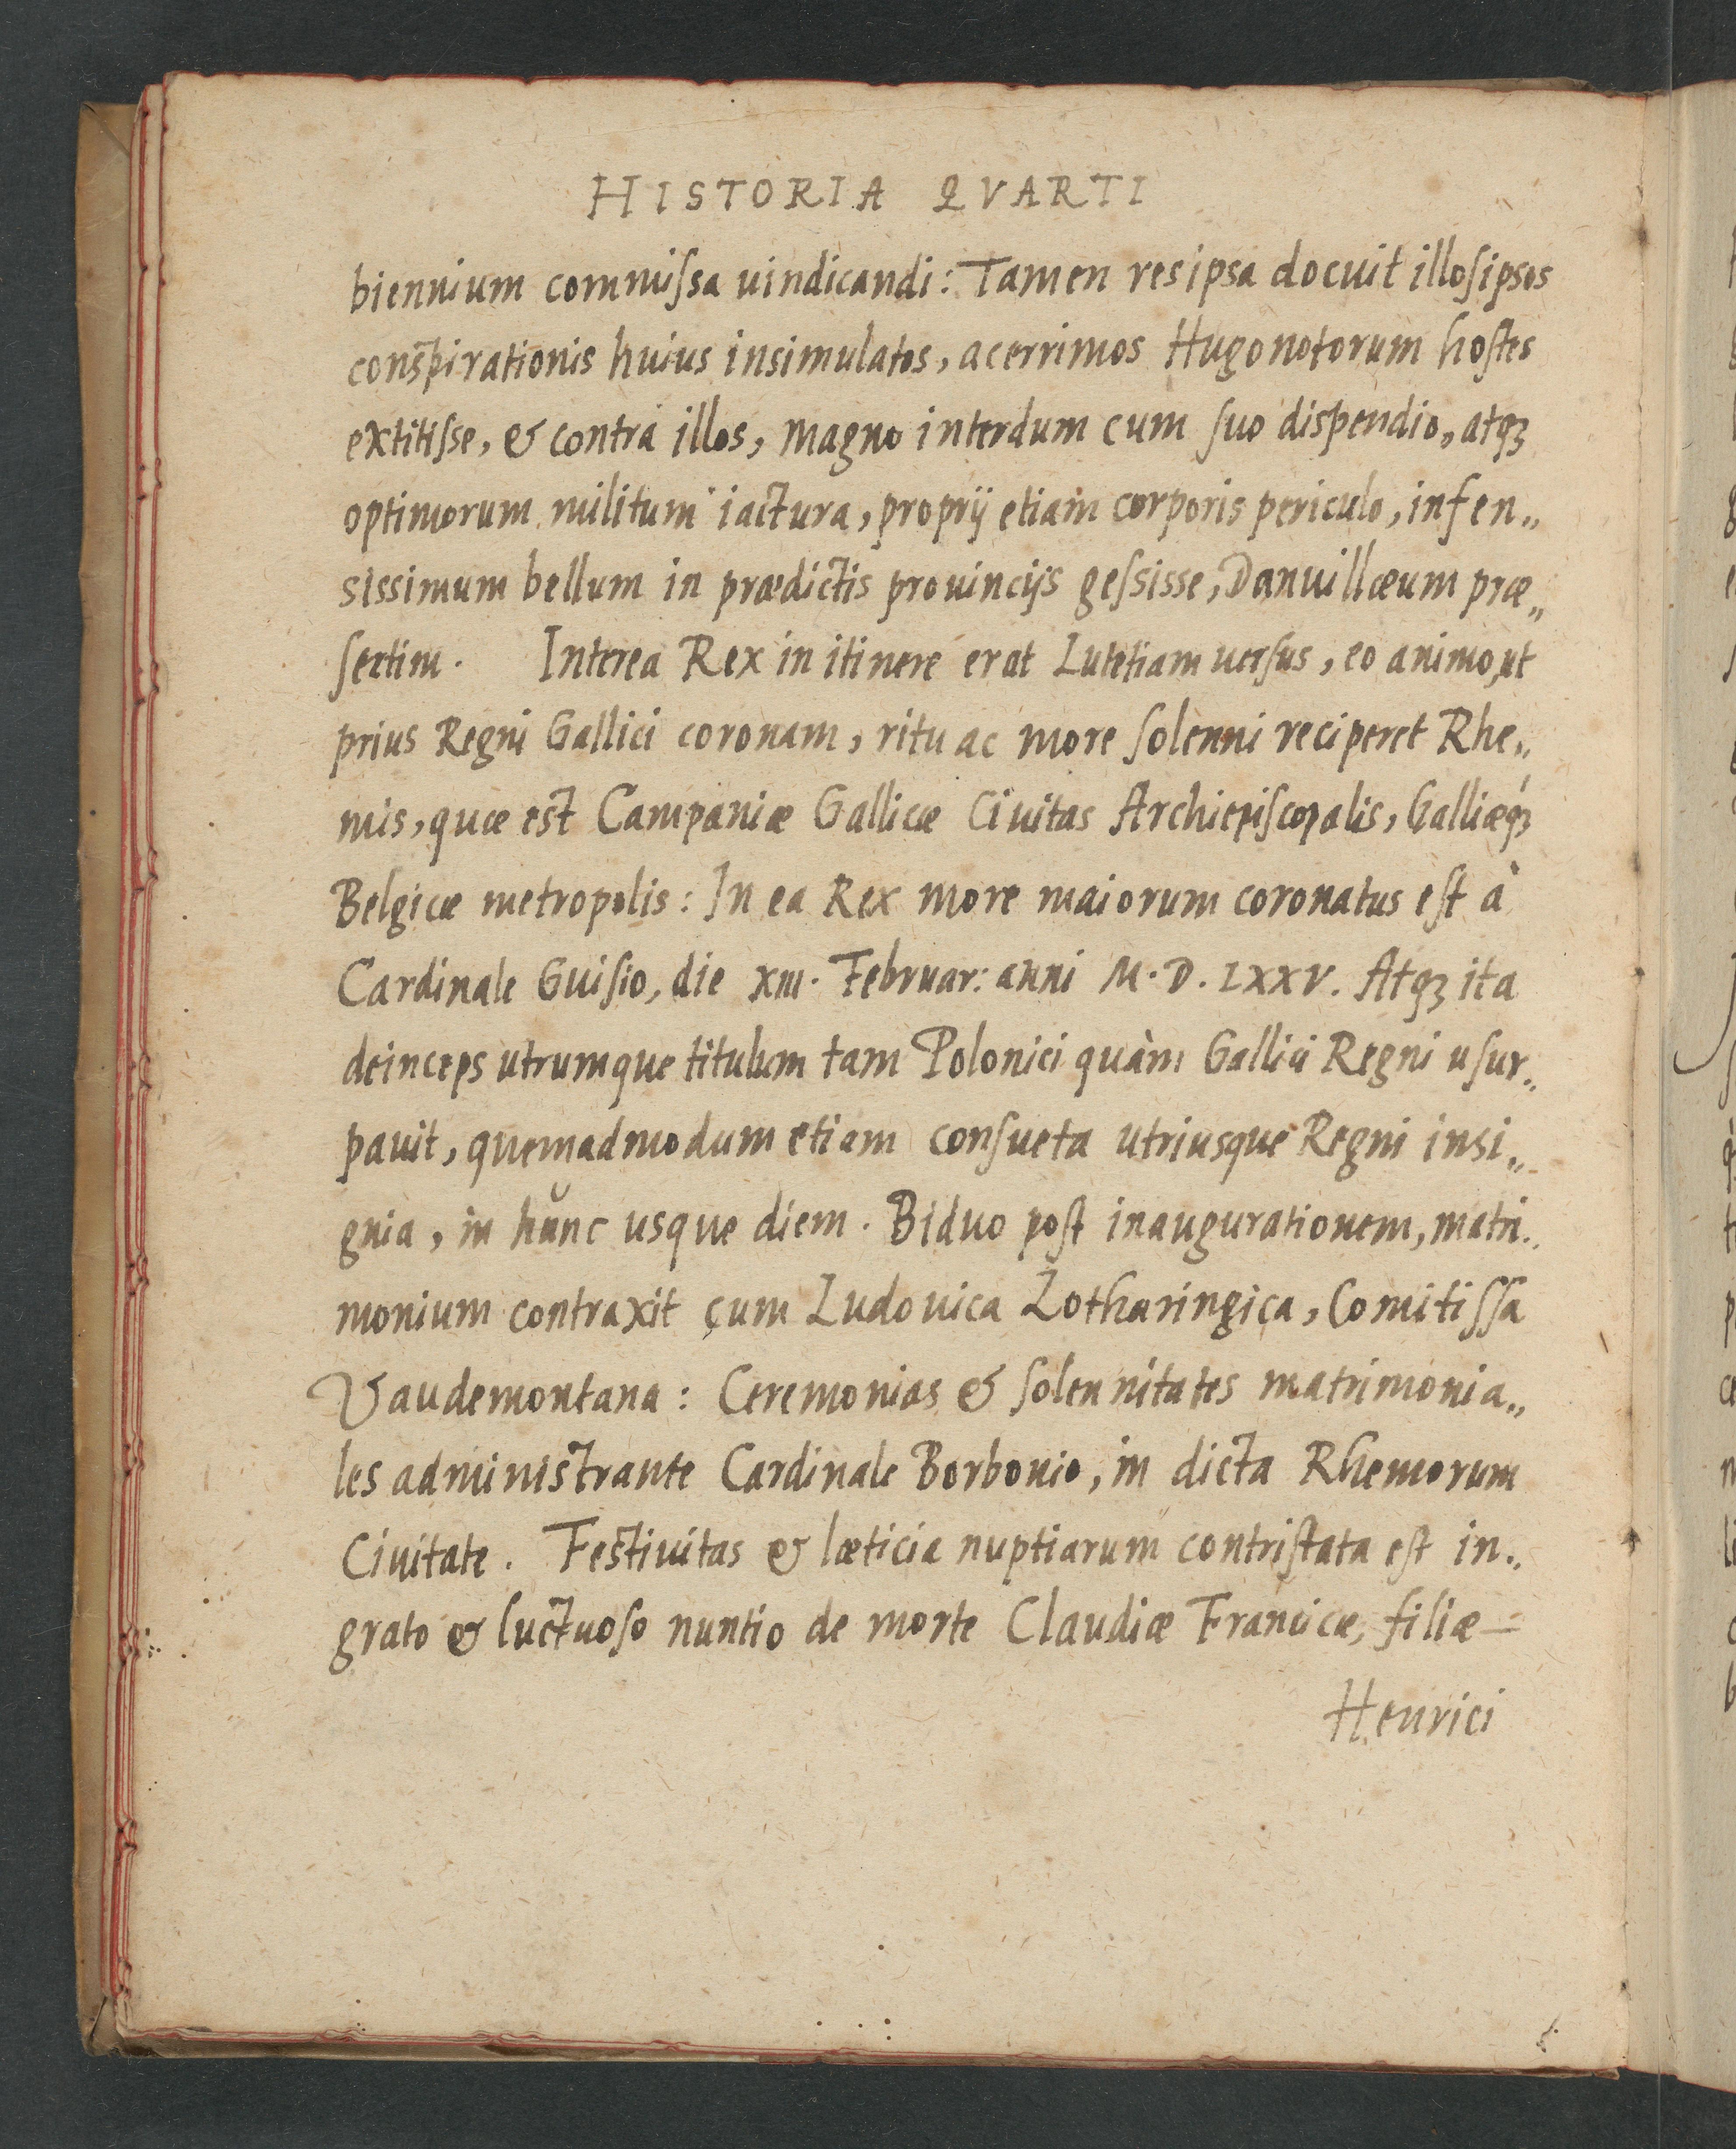 HISTORIA QVARTI
biennium commiſsa uindicandi: Tamen res ipsa docuit illoſipsos
conspirationis huius insimulatos, acerrimos Hugonotorum hoſtes
extitiſse, & contra illos, magno interdum cum ſuo dispendio, atqꝫ
optimorum militum iactura, proprij etiam corporis periculo, infen„
sissimum bellum in prædictis prouincijs geſsisse, Danuillæum præ„
ſertim. Interea Rex in itinere erat Lutetiam uerſus, eo animo, ut
prius Regni Gallici coronam, ritu ac more ſolenni reciperet Rhe„
mis, quæ est Campaniæ Gallicæ Ciuitas Archiepiſcopalis, Galliæqꝫ́
Belgicæ metropolis: In ea Rex more maiorum coronatus eſt à
Cardinale Guiſio, die XIII. Februar: anni M.D.LXXV. Atqꝫ ita
deinceps utrumque titulum tam Polonici quàm Gallici Regni uſur„
pauit, quemadmodum etiam conſueta utriusque Regni insi„
gnia, in hŭnc usque diem. Biduo poſt inaugurationem, matri„
monium contraxit cum Ludouica Lotharingica, Comitiſſa
Vaudemontana: Ceremonias & ſolennitates matrimonia„
les administrante Cardinale Borbonio, in dicta Rhemorum
Ciuitate. Festiuitas & læticia nuptiarum contriſtata eſt in„
grato & luctuoſo nuntio de morte Claudiæ Francicæ, filiæ—
Henrici